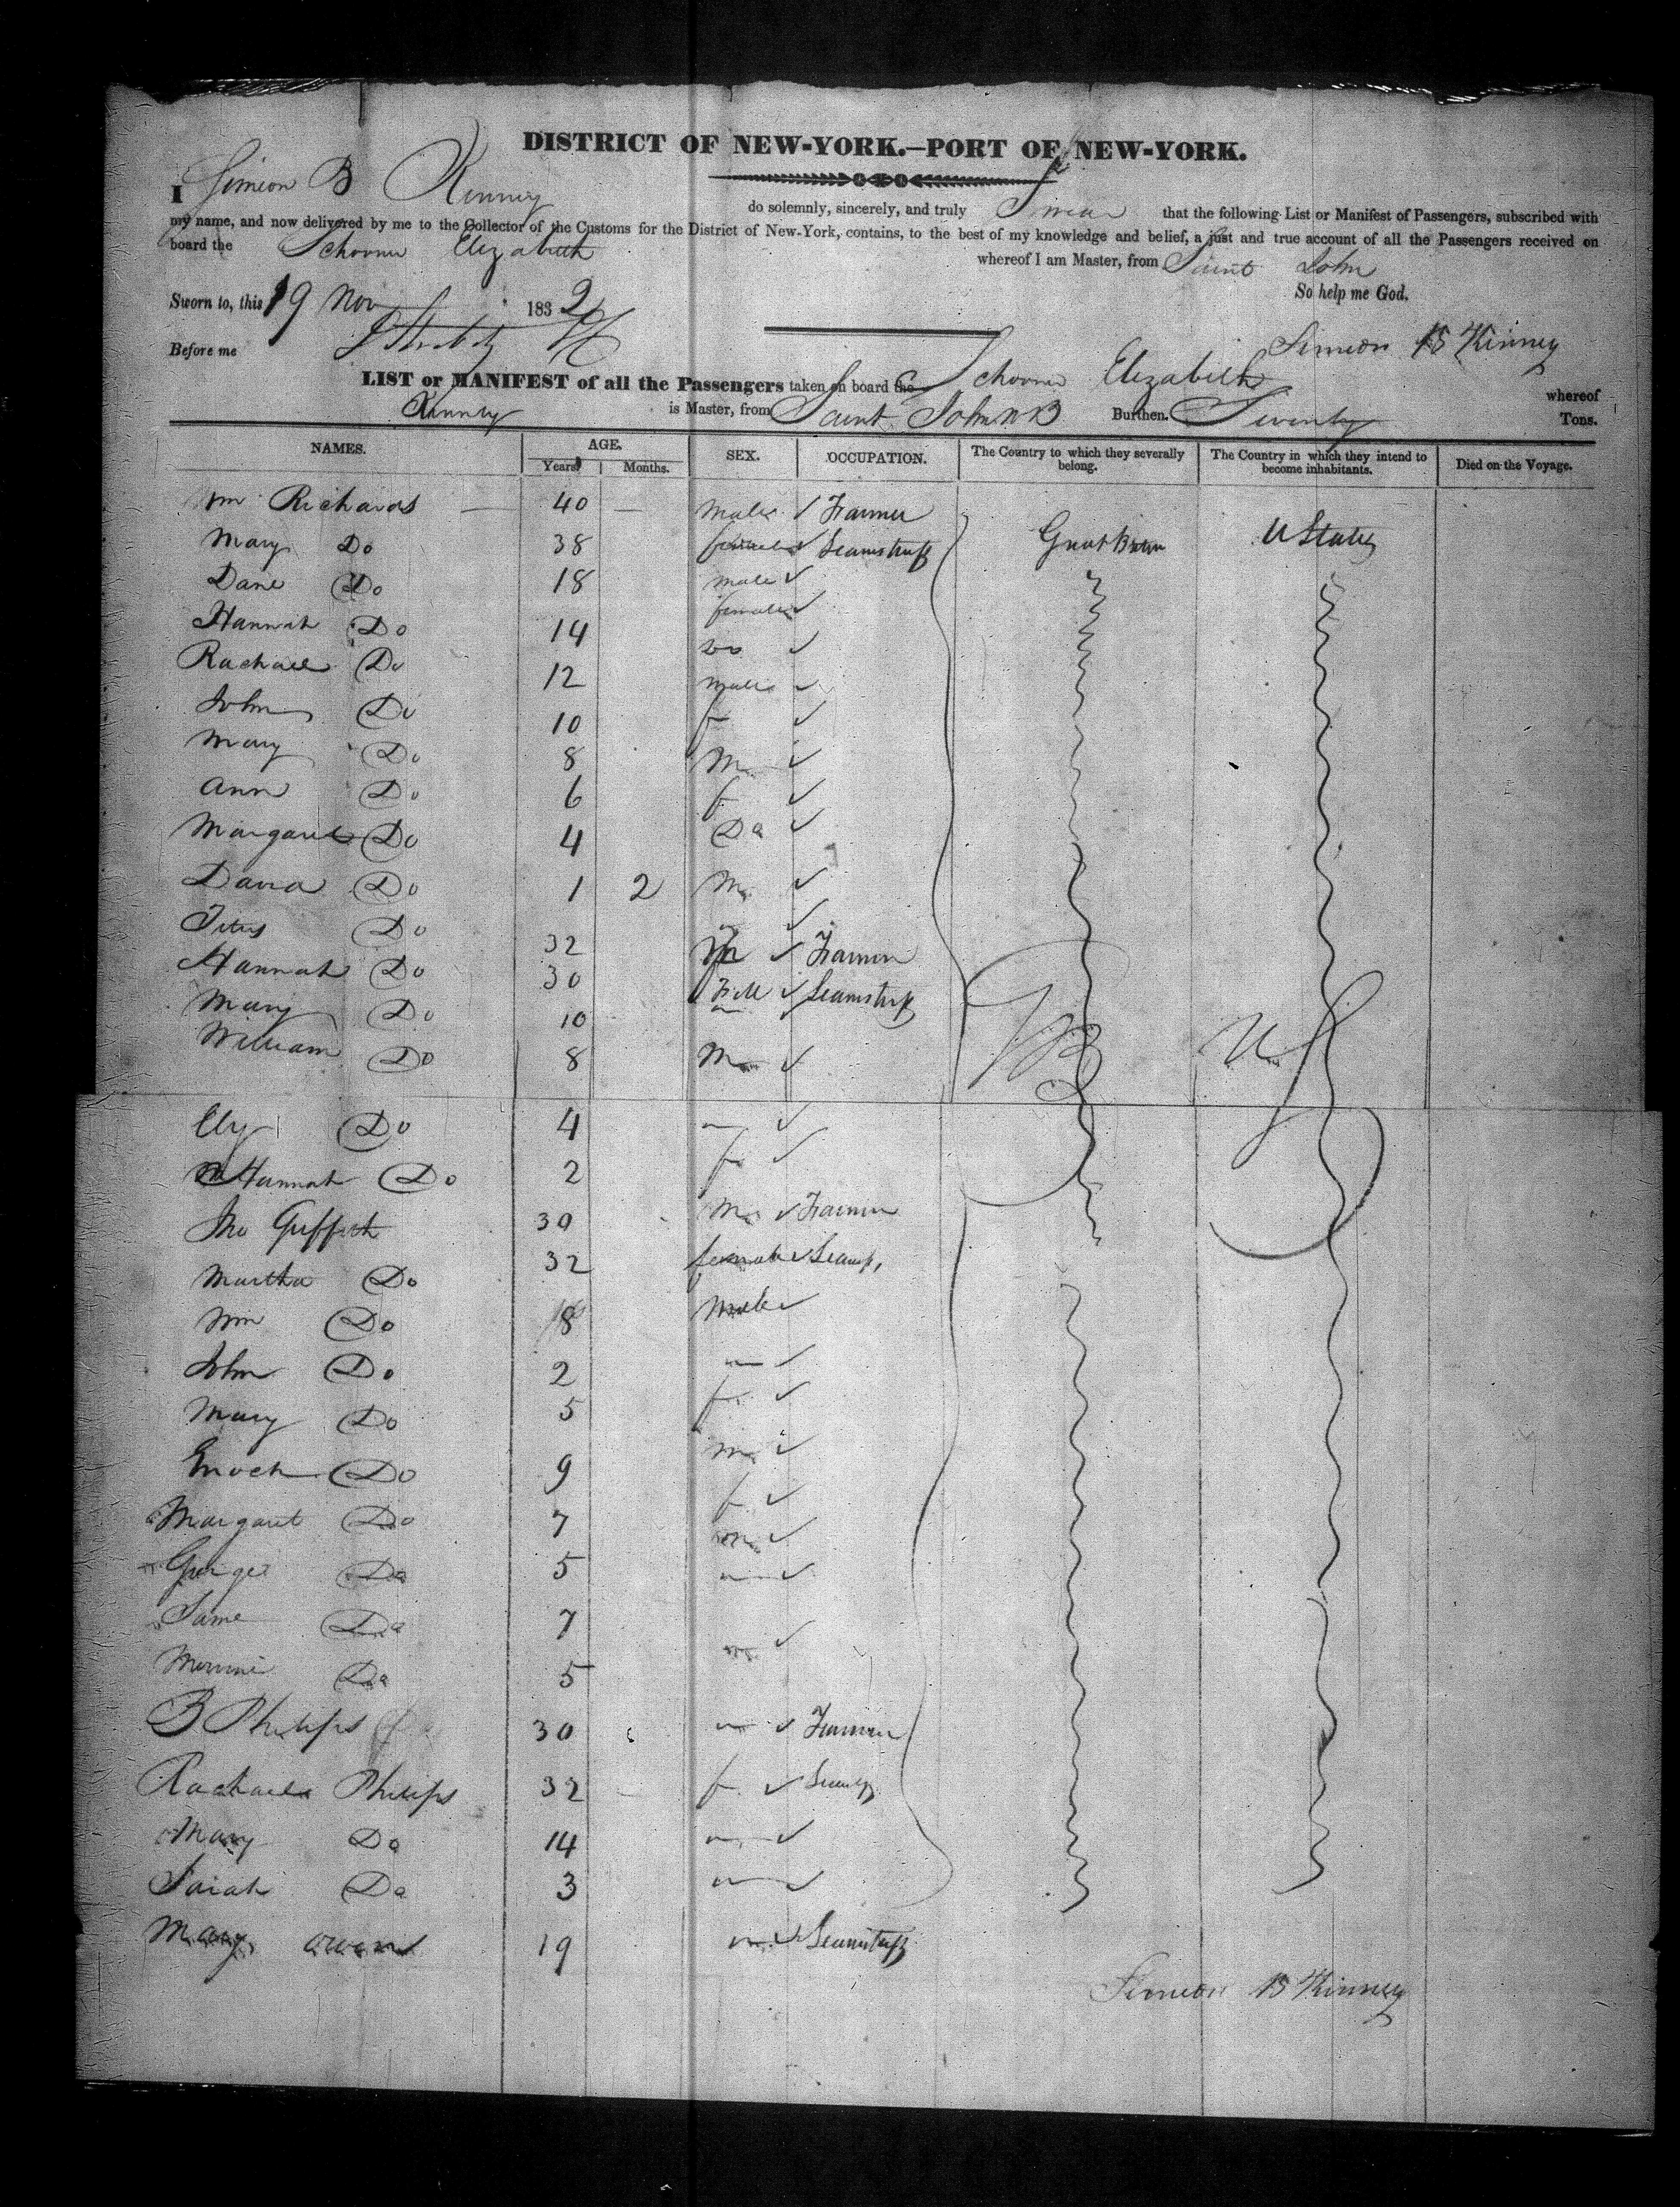 DISTRICT OF NEW-YORK.—PORT OF NEW-YORK.
I Simeon B Kinney do solemnly, sincerely, and truly Swear that the following List or Manifest of Passengers, subscribed with
my name, and now delivered by me to the Collector of the Customs for the District of New-York, contains, to the best of my knowledge and belief, a just and true account of all the Passengers received on
board the Schooner Elizabeth whereof I am Master, from Saint John
So help me God.
Sworn to, this 19 Nov 1832
Before me
Simeon B Kinney
LIST or MANIFEST of all the Passengers taken on board the Schooner Elizabeth whereof
Kinney is Master, from Saint John NB Burthen. Seventy Tons.
NAMES. AGE. SEX. OCCUPATION. The Country to which they severally belong. The Country in which they intend to become inhabitants. Died on the Voyage.
Years. Months.
Wm Richards 40 — Male Farmer
Mary Do 38 female Seamstress Great Britain U States
Do 18 male
Hannah Do 14 female
Rachael Do 12 Do
John Do 10 male
Mary Do 8 f
Ann Do 6 M
Margaret Do 4 f
David Do 1 2 M
Titus Do 32 M Farmer
Hannah Do 30 Seamstress
Mary Do 10
William Do 8 M
GB US
Ely Do 4
Hannah Do 2 f
Jno Griffith 30 M Farmer
Martha Do 32 female Seams
Wm Do 8 Male
John Do 2
Mary Do 5 f
Enoch Do 9 m
Margaret Do 7 f
George Do 5 m
Do 7
Do 5
B Philips 30 Farmer
Rachael Philips 32 f
Mary Do 14
Sarah Do 3
Mary Owens 19 Seamstress
Simeon B Kinney